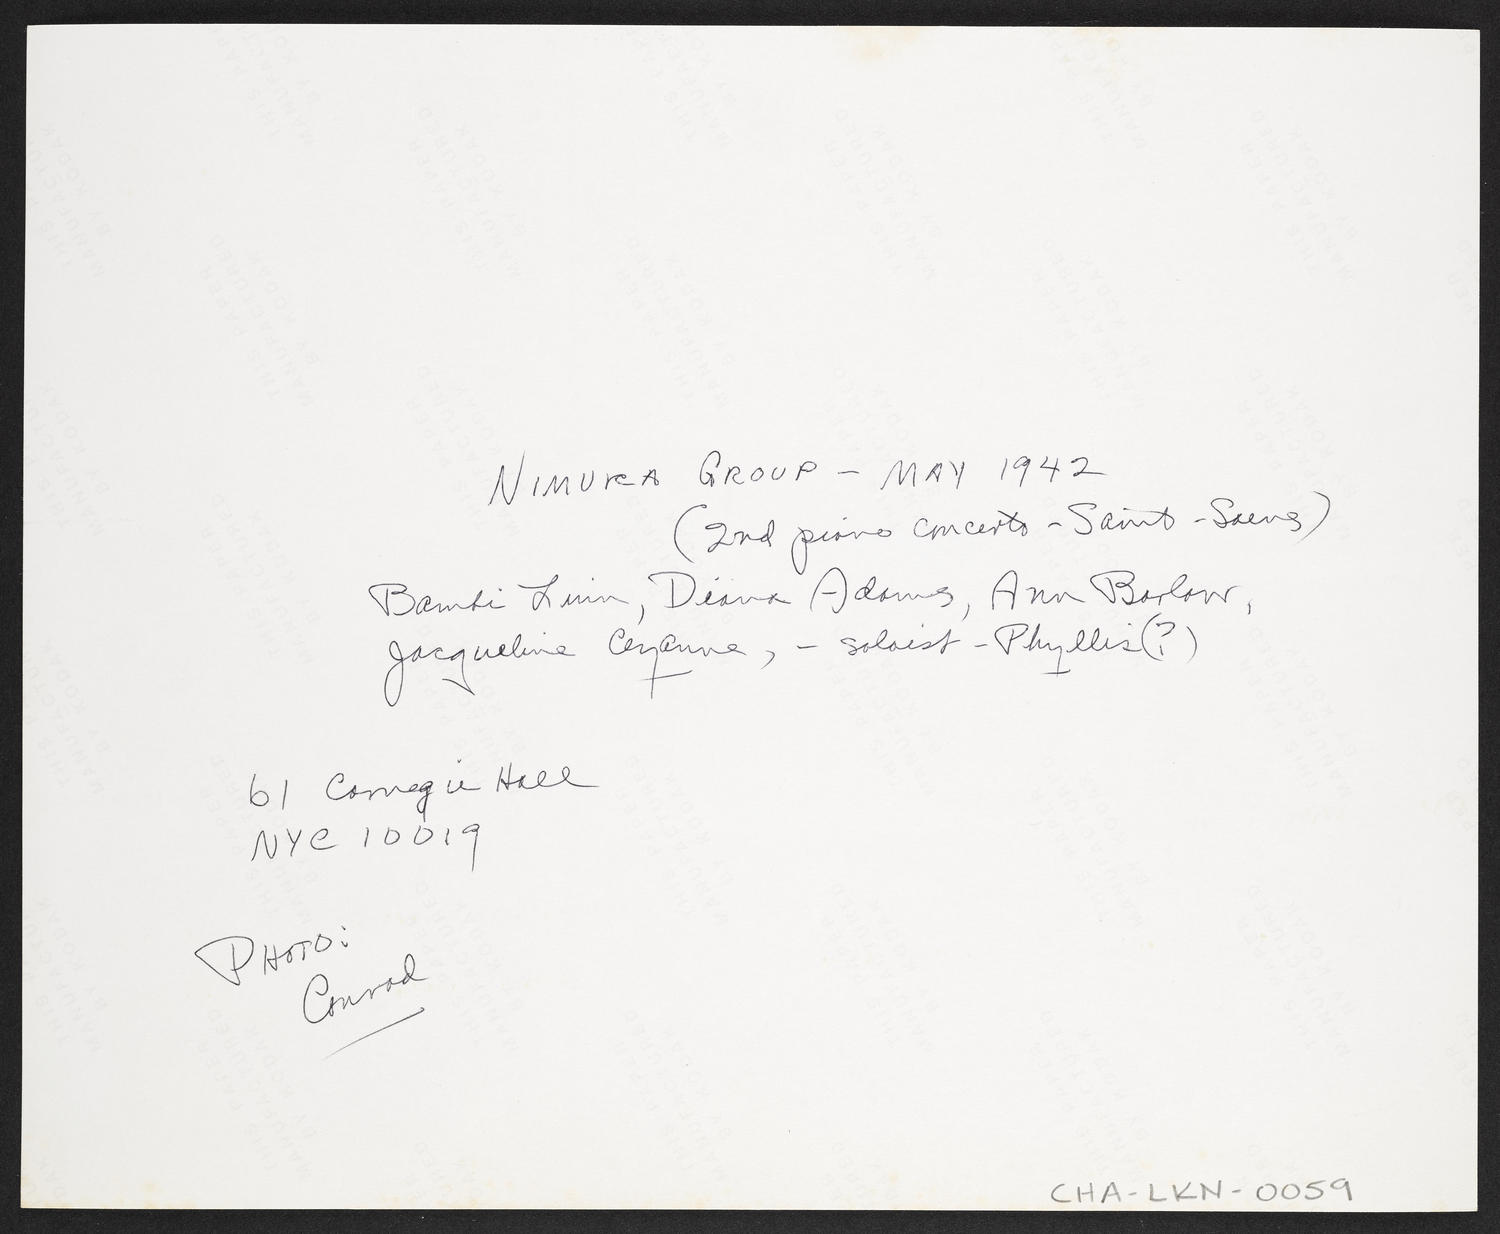 NIMURA GROUP - MAY 1942
(2nd piano concerto - Saint-Saens)
Bambi Linn, Diana Adams, Ann Barlow,
Jacqueline Cezanne, - soloist - Phyllis(?)
61 Carnegie Hall
NYC 10019
PHOTO:
Conrad
CHA-LKN-0059
THIS PAPER
MANUFACTURED
BY KODAK